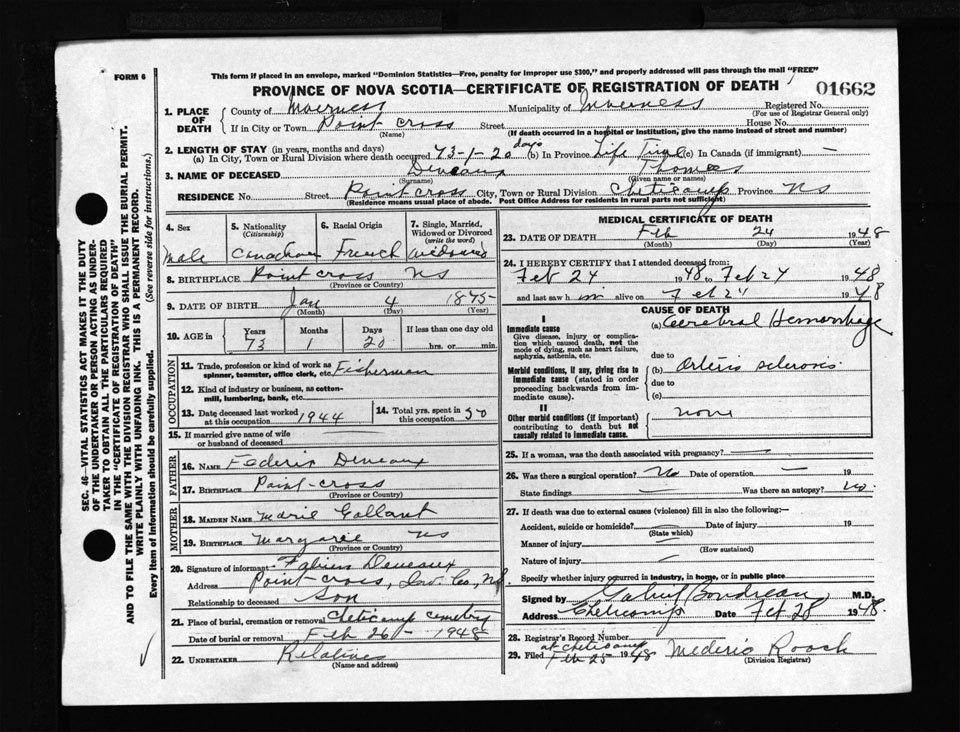 FORM 6
This form if placed in an envelope, marked "Dominion Statistics—Free, penalty for improper use $300," and properly addressed will pass through the mail "FREE"
PROVINCE OF NOVA SCOTIA—CERTIFICATE OF REGISTRATION OF DEATH 01662
1. PLACE OF DEATH County of Inverness Municipality of Inverness Registered No.
(For use of Registrar General only)
If in City or Town Point cross Street House No.
(Name) (If death occurred in a hospital or institution, give the name instead of street and number)
2. LENGTH OF STAY (in years, months and days)
(a) In City, Town or Rural Division where death occurred 73-1-20 days (b) In Province Life Time (c) In Canada (if immigrant) —
3. NAME OF DECEASED Deveaux Thomas
(Surname) (Given name or names)
RESIDENCE No. Street Point cross City, Town or Rural Division Cheticamp Province NS
(Residence means usual place of abode. Post Office Address for residents in rural parts not sufficient)
4. Sex 5. Nationality (Citizenship) 6. Racial Origin 7. Single, Married, Widowed or Divorced (write the word)
male Canadian French widowed
8. BIRTHPLACE Point cross NS
(Province or County)
9. DATE OF BIRTH Jan 4 1875
(Month) (Day) (Year)
10. AGE in Years Months Days If less than one day old
73 1 20 hrs. or min.
OCCUPATION
11. Trade, profession or kind of work as spinner, teamster, office clerk, etc. Fisherman
12. Kind of industry or business, as cotton-mill, lumbering, bank, etc.
13. Date deceased last worked at this occupation 1944 14. Total yrs. spent in this occupation 50
15. If married give name of wife or husband of deceased
FATHER
16. NAME Federis Deveaux
17. BIRTHPLACE Point-cross
(Province or County)
MOTHER
18. MAIDEN NAME Marie Gallant
19. BIRTHPLACE Margaree NS
(Province or County)
20. Signature of informant Fabien Deveaux
Address Point-cross, Inv. Co, NS
Relationship to deceased Son
21. Place of burial, cremation or removal Cheticamp cemetry
Date of burial or removal Feb 26 - 1948
22. UNDERTAKER Relatives
(Name and address)
MEDICAL CERTIFICATE OF DEATH
23. DATE OF DEATH Feb 24 1948
(Month) (Day) (Year)
24. I HEREBY CERTIFY that I attended deceased from:
Feb 24 1948 to Feb 24 1948
and last saw him alive on Feb 24 1948
CAUSE OF DEATH
I
Immediate cause
Give disease, injury or complication which caused death, not the mode of dying, such as heart failure, asphyxia, asthenia, etc.
(a) Cerebral Hemorrhage
due to
Morbid conditions, if any, giving rise to immediate cause (stated in order proceeding backwards from immediate cause).
(b) Arterio sclerosis
due to
(c)
II
Other morbid conditions (if important) contributing to death but not causally related to immediate cause.
none
25. If a woman, was the death associated with pregnancy? —
26. Was there a surgical operation? No Date of operation — 19
State findings — Was there an autopsy? No.
27. If death was due to external causes (violence) fill in also the following:—
Accident, suicide or homicide? Date of injury 19
(State which)
Manner of injury
(How sustained)
Nature of injury
Specify whether injury occurred in industry, in home, or in public place
Signed by Boudreau M.D.
Address Cheticamp Date Feb 28 1948.
28. Registrar's Record Number
29. Filed at Cheticamp Feb 25 1948 Mederic Roach
(Division Registrar)
SEC. 46—VITAL STATISTICS ACT MAKES IT THE DUTY
OF THE UNDERTAKER OR PERSON ACTING AS UNDER-
TAKER TO OBTAIN ALL THE PARTICULARS REQUIRED
IN THE "CERTIFICATE OF REGISTRATION OF DEATH"
AND TO FILE THE SAME WITH THE DIVISION REGISTRAR WHO SHALL ISSUE THE BURIAL PERMIT.
WRITE PLAINLY WITH UNFADING INK. THIS IS A PERMANENT RECORD.
Every item of information should be carefully supplied. (See reverse side for instructions.)